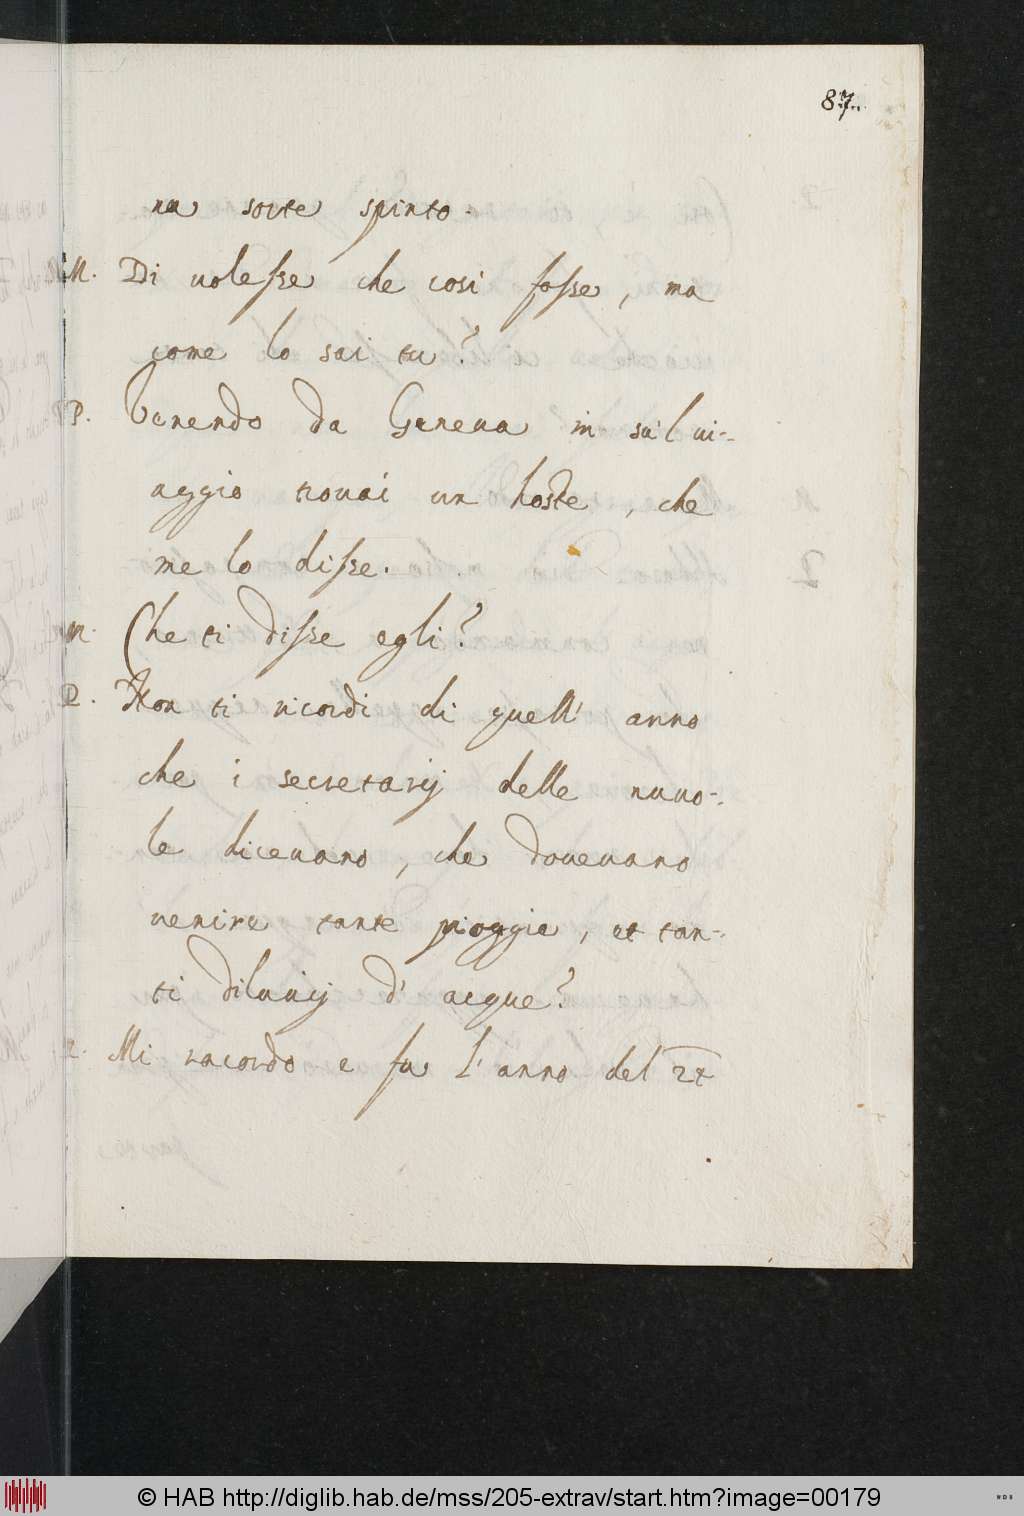 87.
na sorte spinto.
M. Di uolesse che cosi fosse, ma
come lo sai tu?
P. Venendo da Geneua in su'l ui-
aggio trouai un hoste, che
me lo disse.
M. Che ti disse egli?
P. Non ti ricordi di quell' anno
che i secretarij delle nuuo-
le diceuano, che doueuano
venire tante pioggie, et tan-
ti diluuij d' acque?
Mi racordo e fu l' anno del 24
© HAB http://diglib.hab.de/mss/205-extrav/start.htm?image=00179